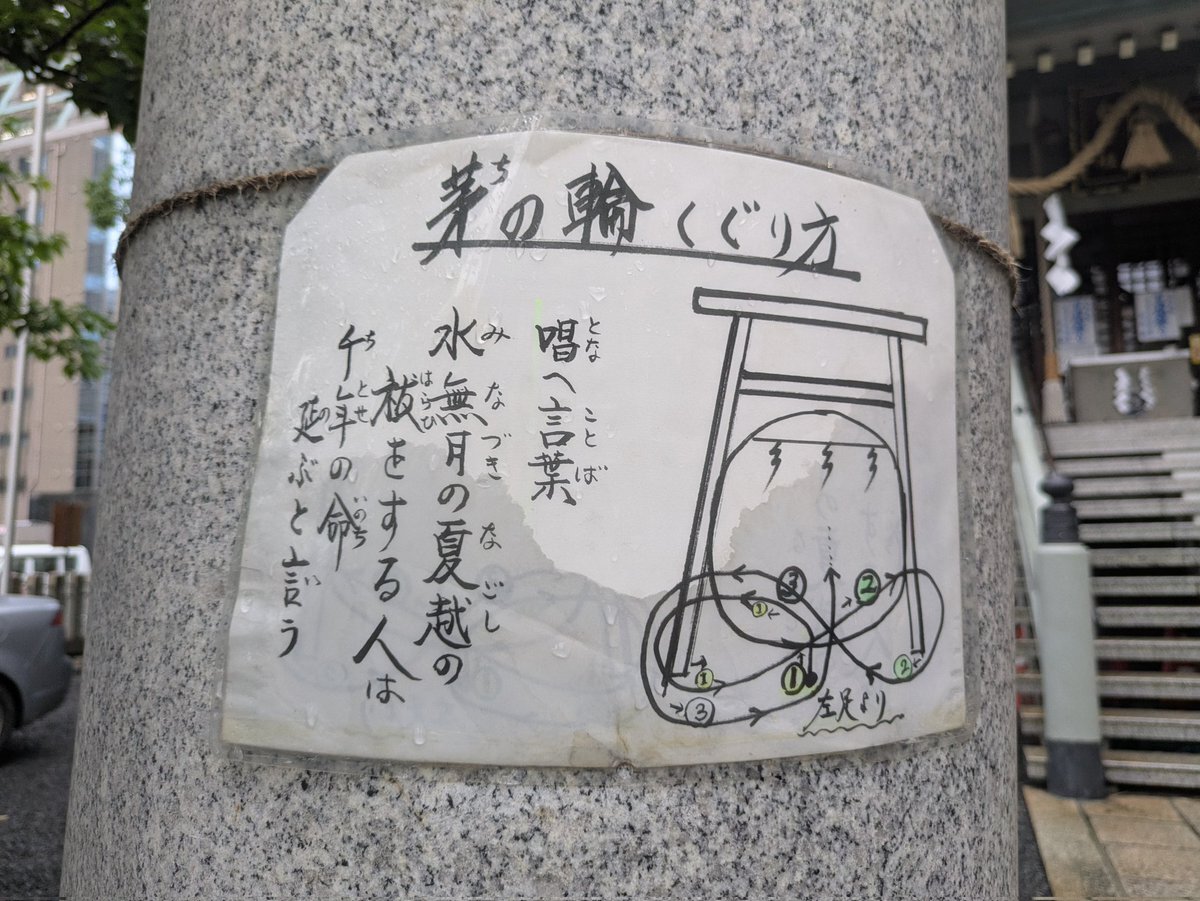 茅の輪くぐり方
ち
唱へ言葉
とな ことば
水無月の夏越の
みなづき なごし
祓をする人は
はらひ
千年の命
ちとせ いのち
延ぶと言う
の い
③
②
①
①
②
①
③
左足より